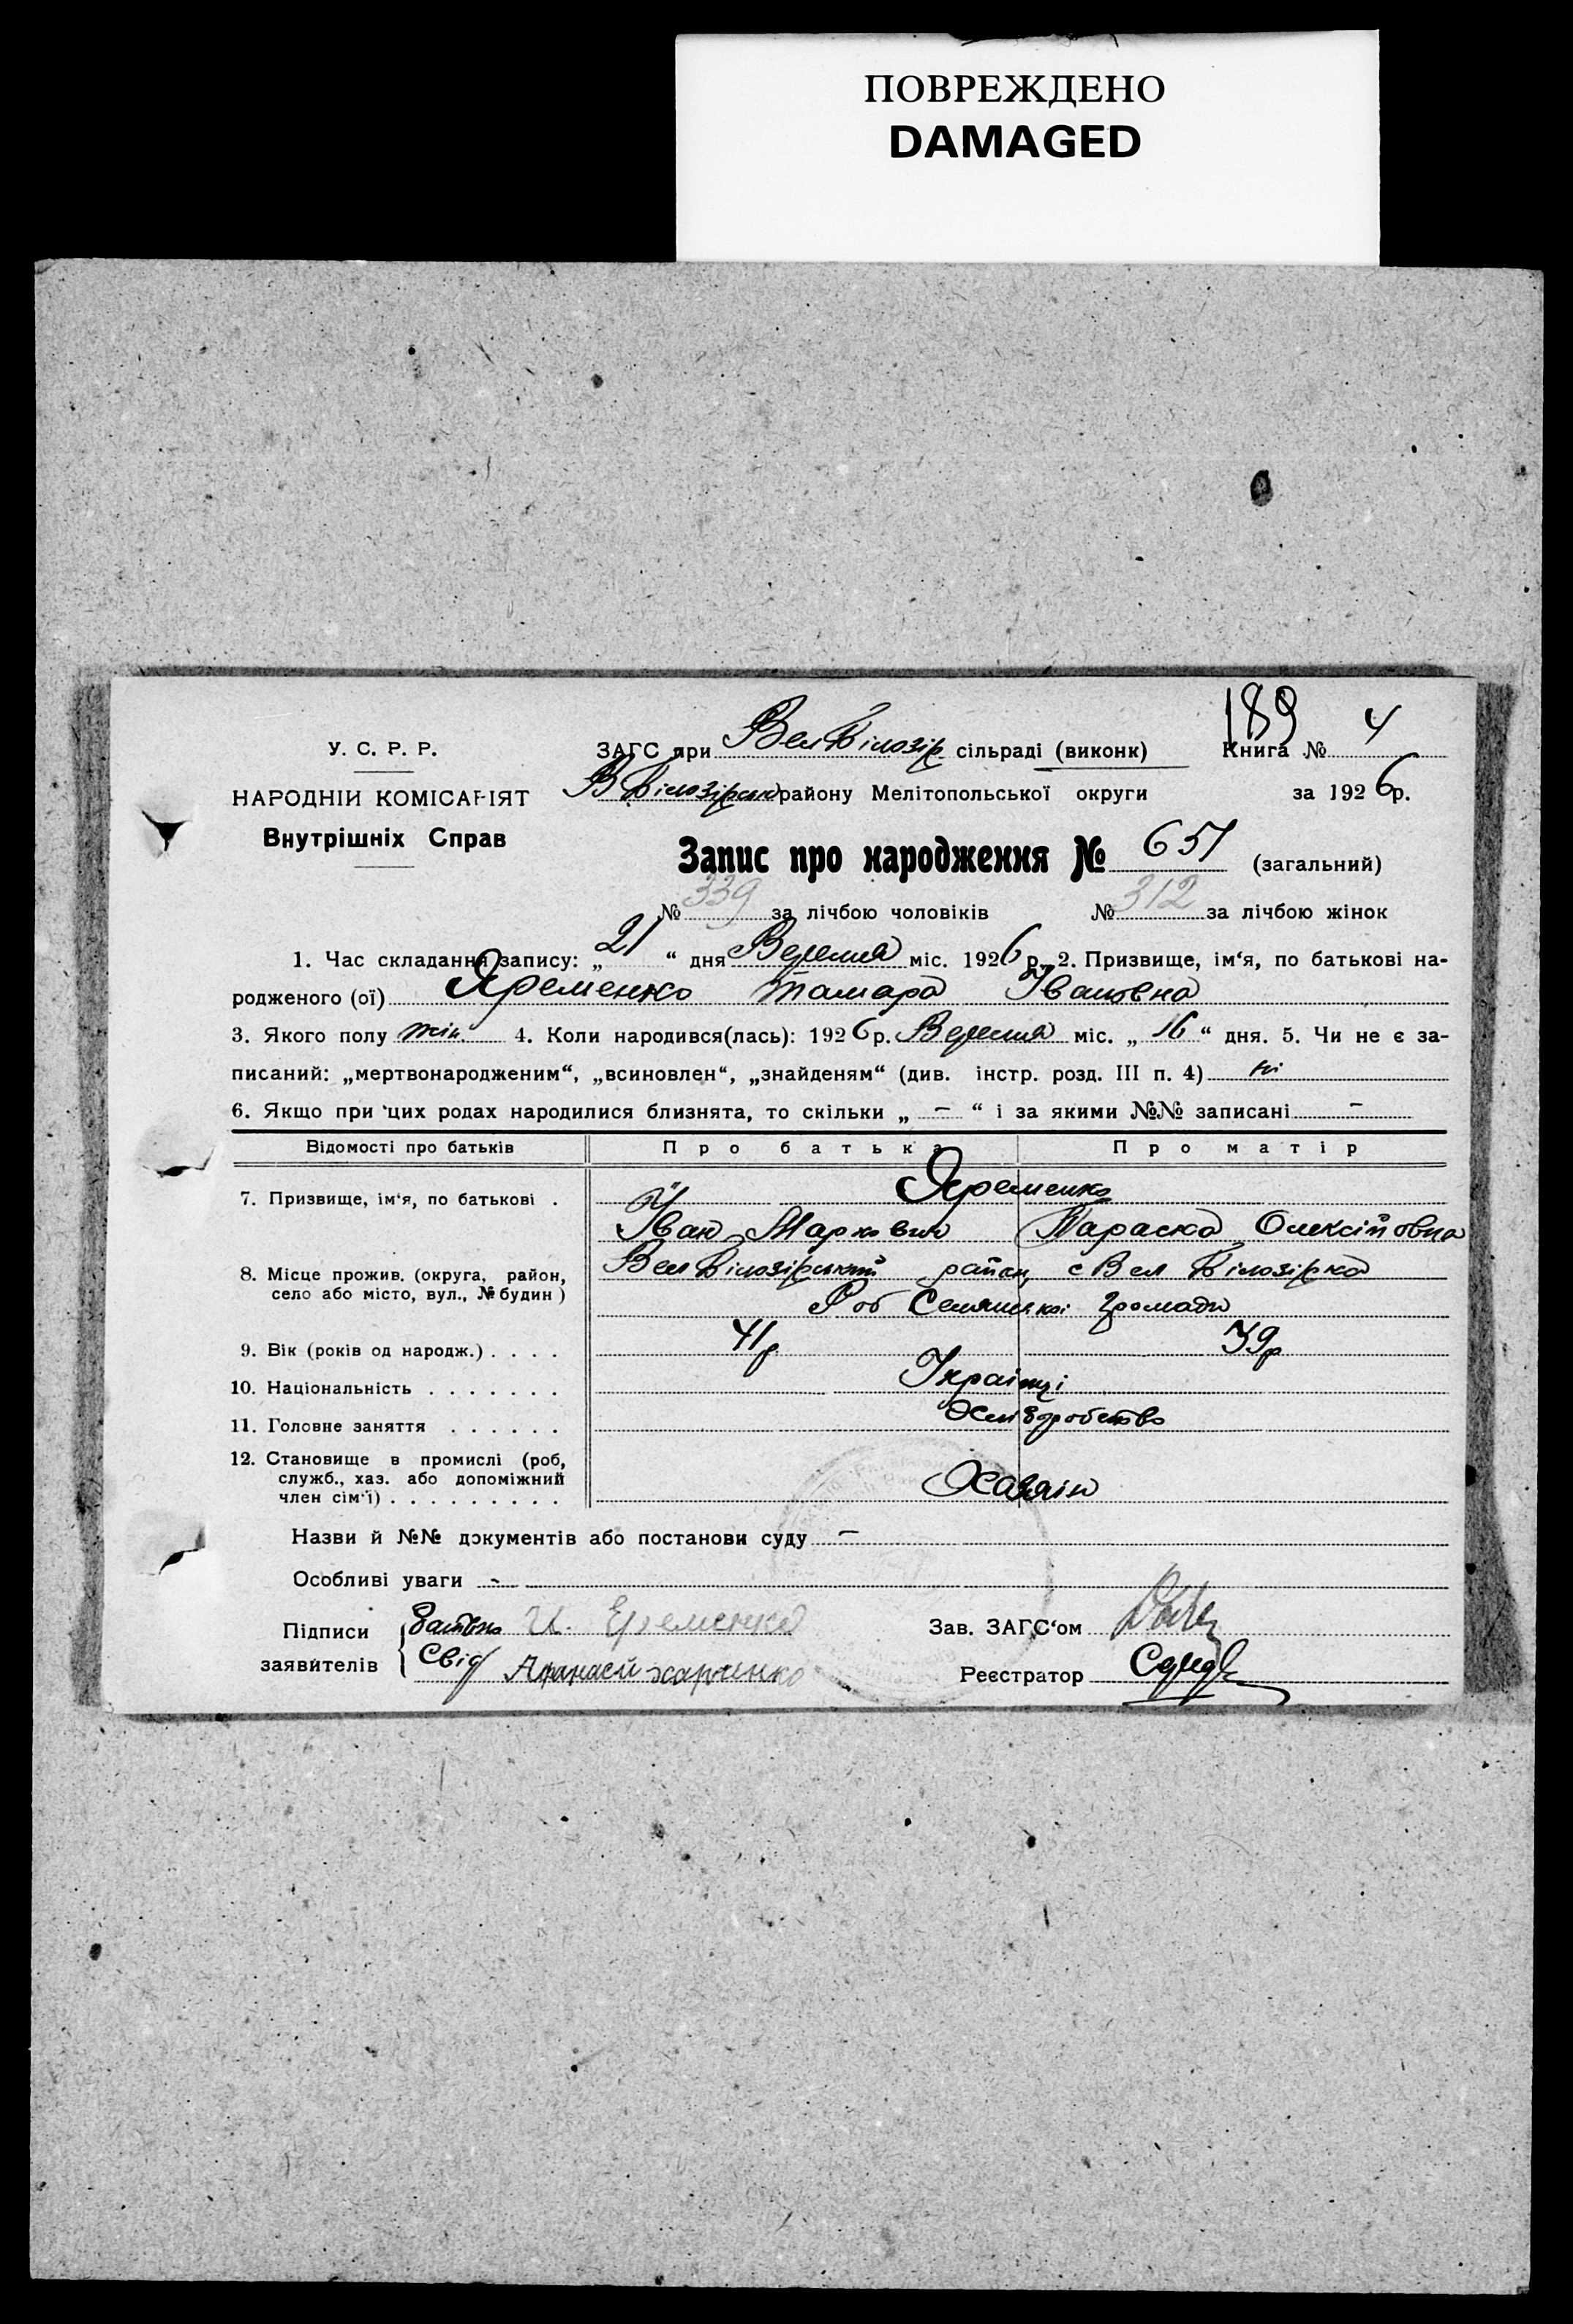 ПОВРЕЖДЕНО
DAMAGED
189
У. С. Р. Р.
НАРОДНІИ КОМІСАРІЯТ
Внутрішніх Справ
ЗАГС при Вел Білозір сільраді (виконк) Книга № 4
В Білозірськ району Мелітопольської округи за 1926р.
Запис про народження № 651 (загальний)
№ 339 за лічбою чоловіків № 312 за лічбою жінок
1. Час складання запису: „21“ дня Вересня міс. 1926 р. 2. Призвище, ім‘я, по батькові на-
родженого (ої) Яременко Тамара Івановна
3. Якого полу жін. 4. Коли народився(лась): 1926р. Вересня міс. „16“ дня. 5. Чи не є за-
писаний: „мертвонародженим“, „всиновлен“, „знайденям“ (див. інстр. розд. III п. 4) ні
6. Якщо при цих родах народилися близнята, то скільки „ – “ і за якими №№ записані –
Відомості про батьків Про батька Про матір
7. Призвище, ім‘я, по батькові . Яременко
Іван Маркович Параска Олексійовна
8. Місце прожив. (округа, район, село або місто, вул., № будин) Вел Білозірський район, с Вел Білозірка
Роб Селянської громади
9. Вік (років од народж.) . . . . 41р 39р
10. Національність . . . . . . . Українці
11. Головне заняття . . . . . . Хліборобство
12. Становище в промислі (роб,
служб., хаз. або допоміжний
член сім‘ї) . . . . . . . . . Хазяїн
Назви й №№ документів або постанови суду –
Особливі уваги -
Підписи заявителів Батько И. Еременко
Свід Афанасй харченко
Зав. ЗАГС‘ом
Реєстратор